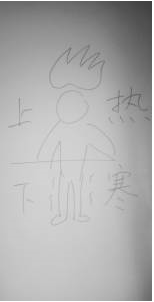 上 热
下 寒